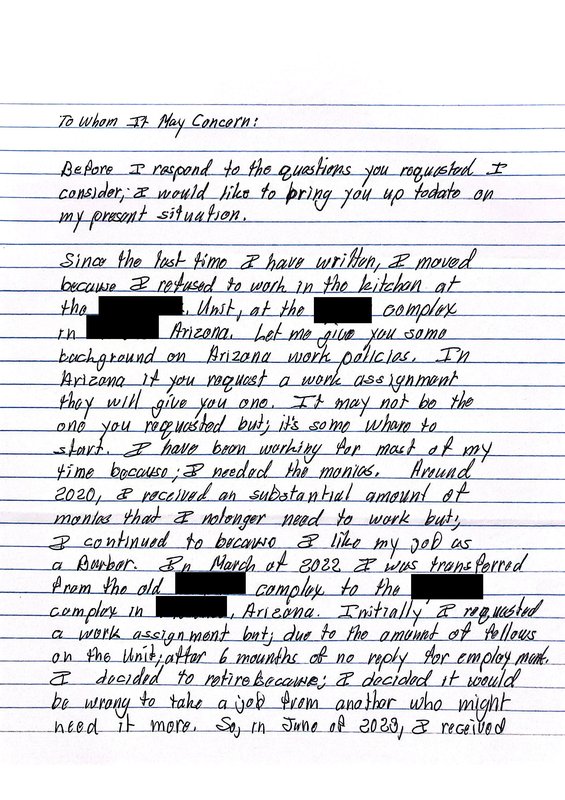 To Whom It May Concern:
Before I respond to the questions you requested I
consider; I would like to bring you up todate on
my present situation.
Since the last time I have written, I moved
because I refused to work in the kitchen at
the . Unit, at the complex
in Arizona. Let me give you some
background on Arizona work policies. In
Arizona if you request a work assignment
they will give you one. It may not be the
one you requested but; it's some where to
start. I have been working for most of my
time because; I needed the monias. Around
2020, I received an substantial amount of
monias that I nolonger need to work but;
I continued to because I like my job as
a Barbor. In March of 2022 I was transferred
from the old complex to the
complex in , Arizona. Initially I requested
a work assignment but; due to the amount of fellows
on the Unit; after 6 mounths of no reply for employment.
I decided to retire because; I decided it would
be wrong to take a job from another who might
need it more. So, in June of 2023, I received